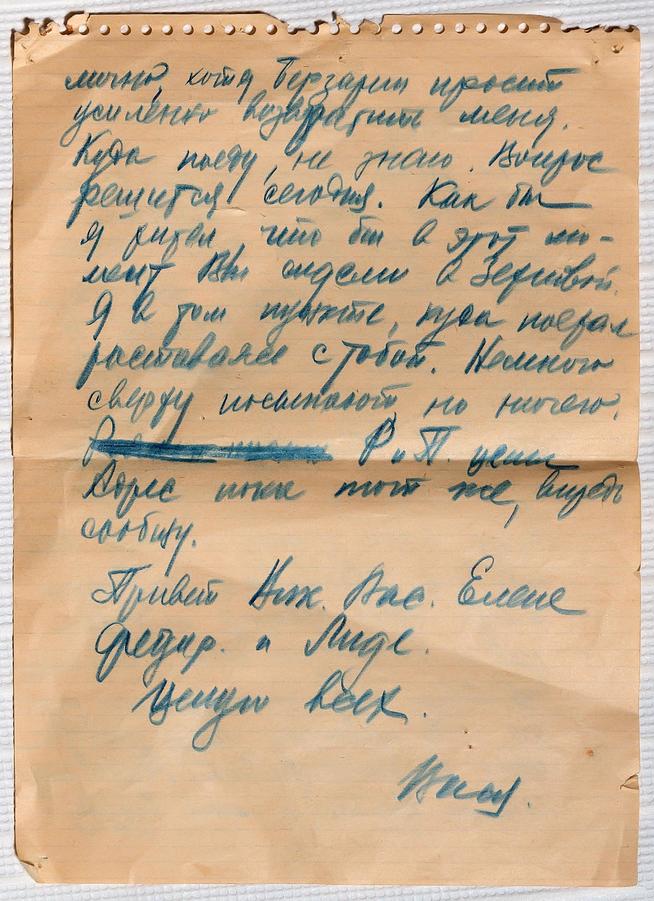 мично, хотя Берзарин просит
усиленно возвратить меня.
Куда поеду, не знаю. Вопрос
решится сегодня. Как бы
я хотел, что бы в этот мо-
мент Вы сидели в Зерновой.
Я в том пункте, куда поехал
расставаясь с тобой. Немного
сверху посыпают но ничего.
Р и П. целы
Адрес пока тот же, впредь
сообщу.
Привет Ник. Вас. Елене
Федор. и Лиде.
Целую всех.
Вася.